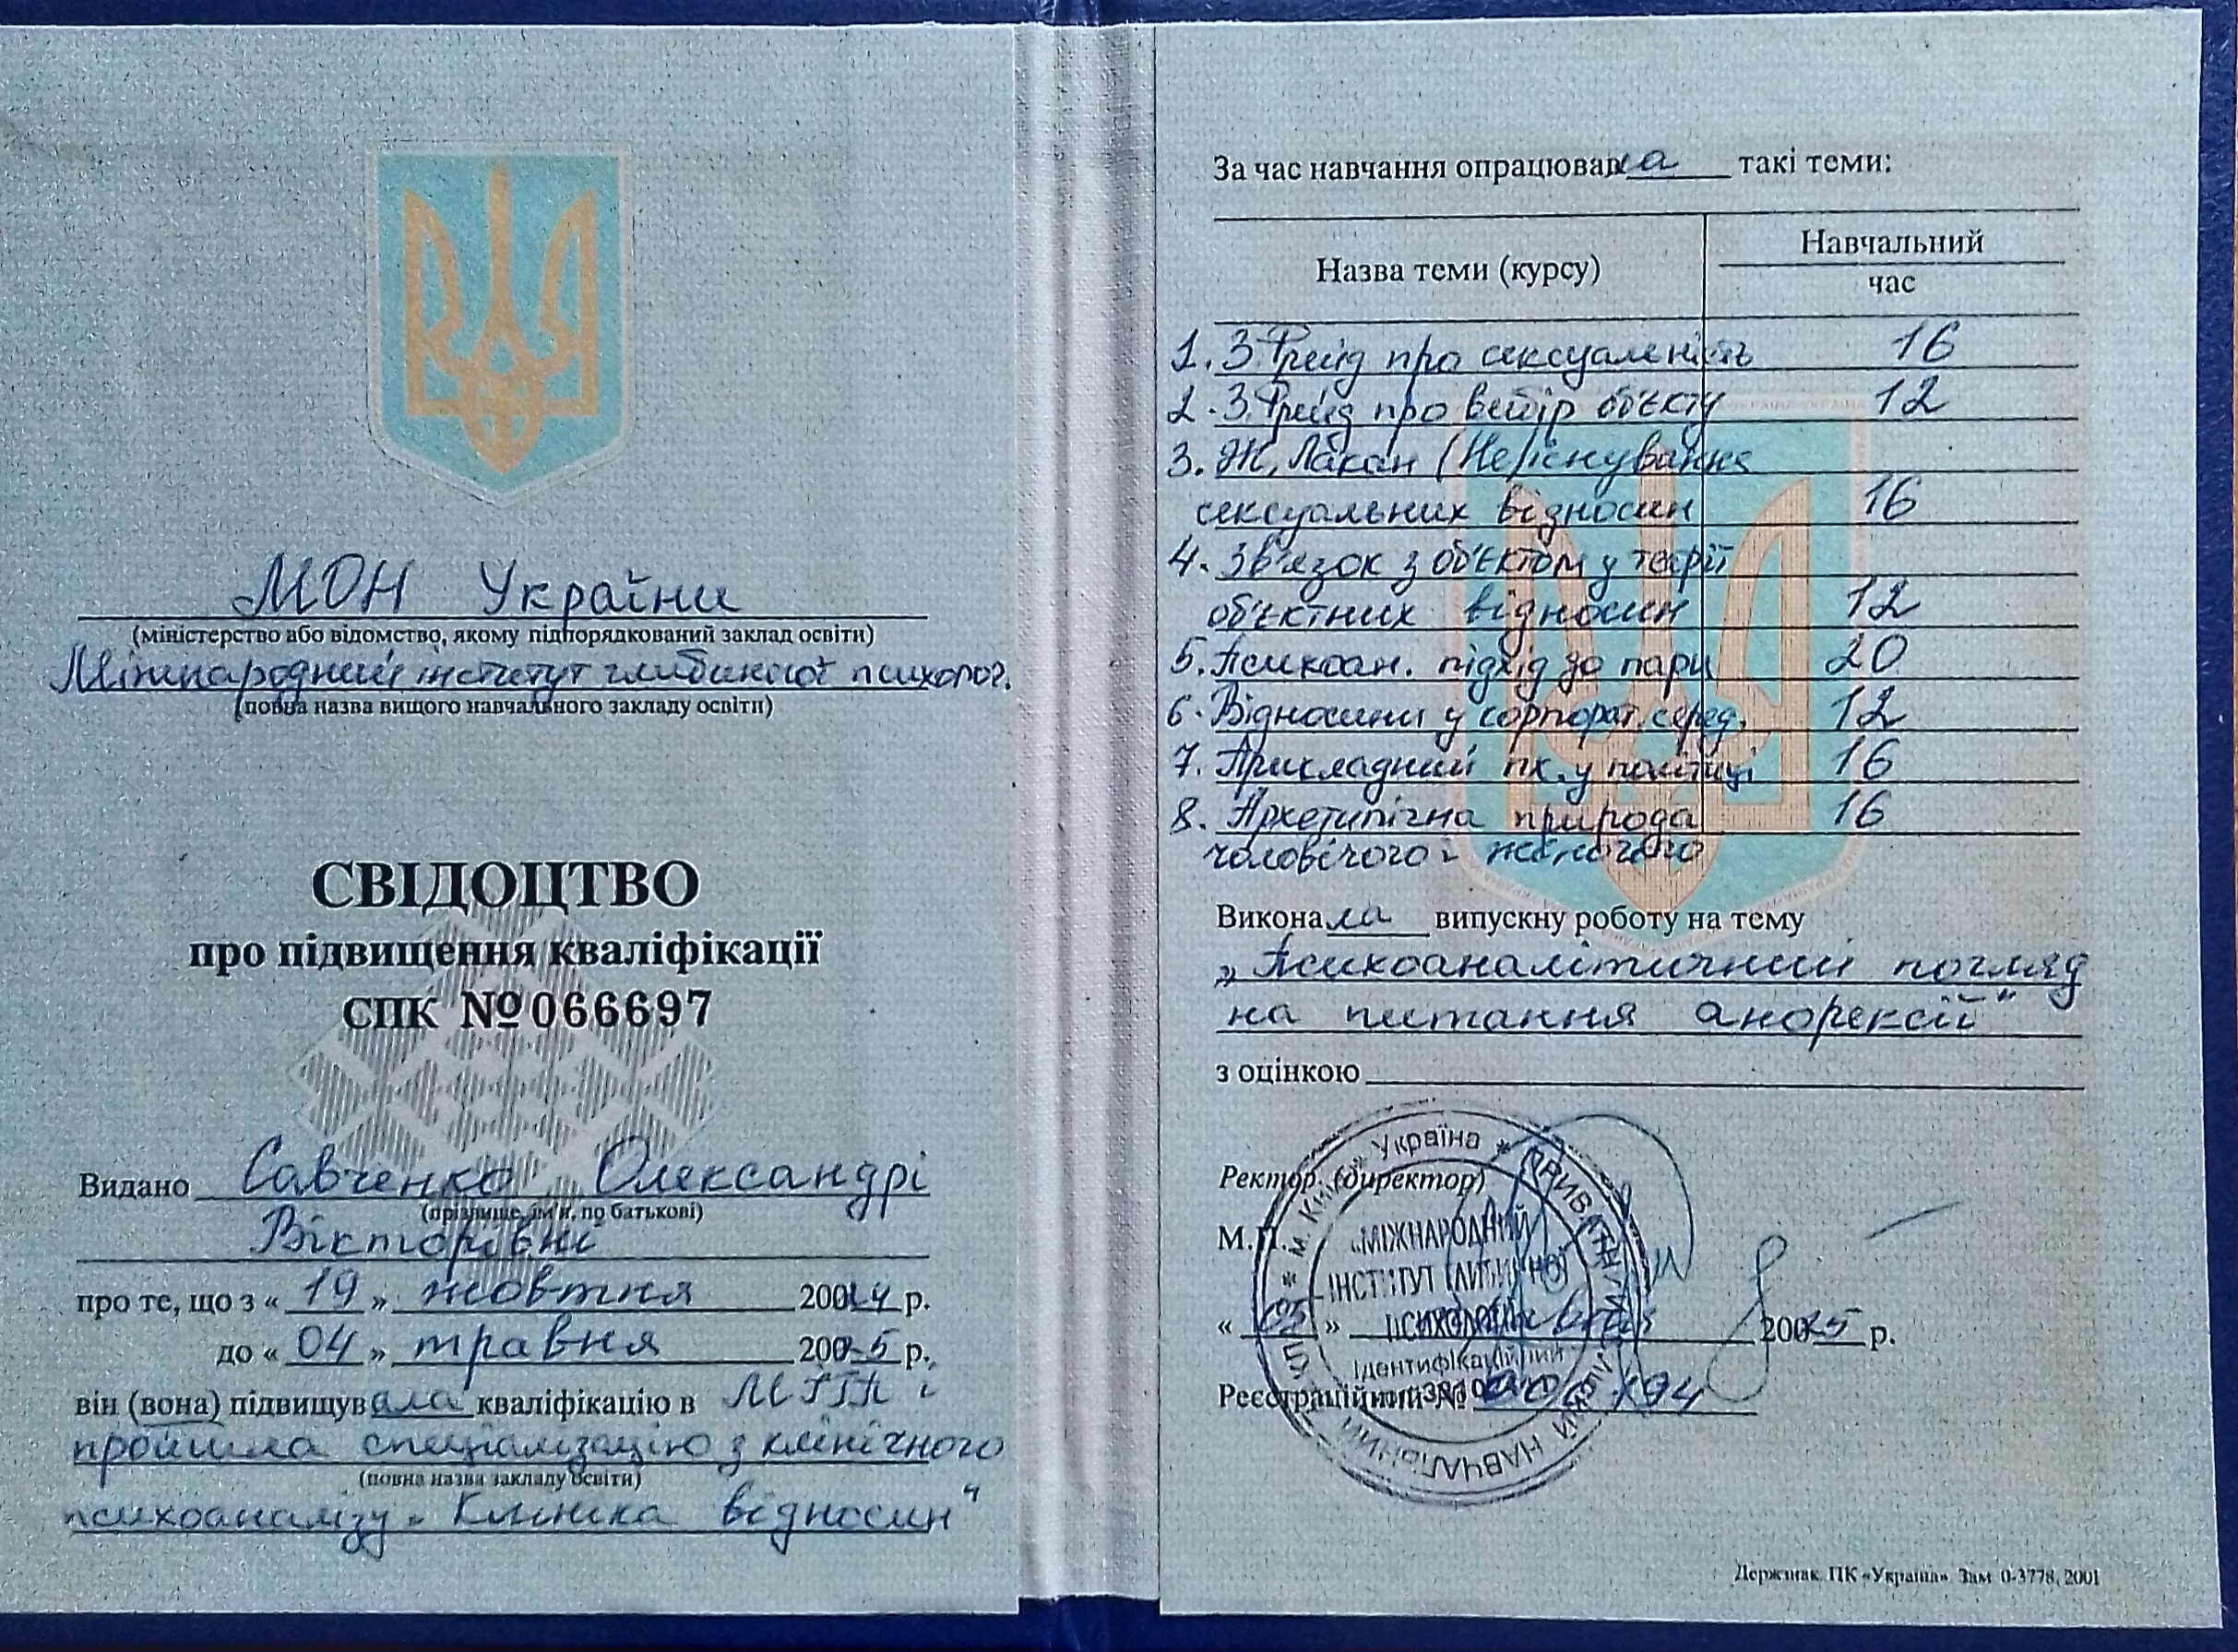 МОН України
(міністерство або відомство, якому підпорядкований заклад освіти)
Міжнародний інститут глибинної психолог.
(повна назва вищого навчального закладу освіти)
СВІДОЦТВО
про підвищення кваліфікації
СПК №066697
Видано Савченко Олександрі
(прізвище, ім'я, по батькові)
Вікторівні
про те, що з «19» жовтня р.
до «04» травня р.
він (вона) підвищувала кваліфікацію в МІГП і
пройшла спеціалізацію з клінічного
(повна назва закладу освіти)
психоаналізу „Клініка відносин"
За час навчання опрацювала такі теми:
Назва теми (курсу)
Навчальний
час
1. З.Фрейд про сексуальність 16
2. З.Фрейд про вибір об'єкту 12
3. Ж. Лакан (Не)існування
сексуальних відносин 16
4. Зв'язок з об'єктом у теорії
об'єктних відносин 12
5. Психоан. підхід до пари 20
6. Відносини у корпорат. серед. 12
7. Прикладний пх. у політиці 16
8. Архетипічна природа 16
чоловічого і жіночого
Виконала випускну роботу на тему
„Психоаналітичний погляд
на питання анорексії"
з оцінкою
Ректор (директор)
М.П.
«05» р.
Реєстраційний №
* м. Київ * Україна * ПРИВАТНИЙ ВИЩИЙ НАВЧАЛЬНИЙ
«МІЖНАРОДНИЙ
ІНСТИТУТ ГЛИБИННОЇ
ПСИХОЛОГІЇ»
Ідентифікаційний
Держзнак. ПК «Україна». Зам. 0-3778, 2001